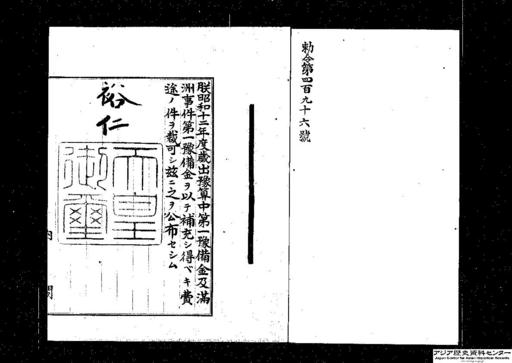 勅令第四百九十六號
朕昭和十二年度歳出豫算中第一豫備金及滿
洲事件第一豫備金ヲ以テ補充シ得ベキ費
途ノ件ヲ裁可シ茲ニ之ヲ公布セシム
裕仁
天皇
御璽
内閣
アジア歴史資料センター
Japan Center for Asian Historical Records